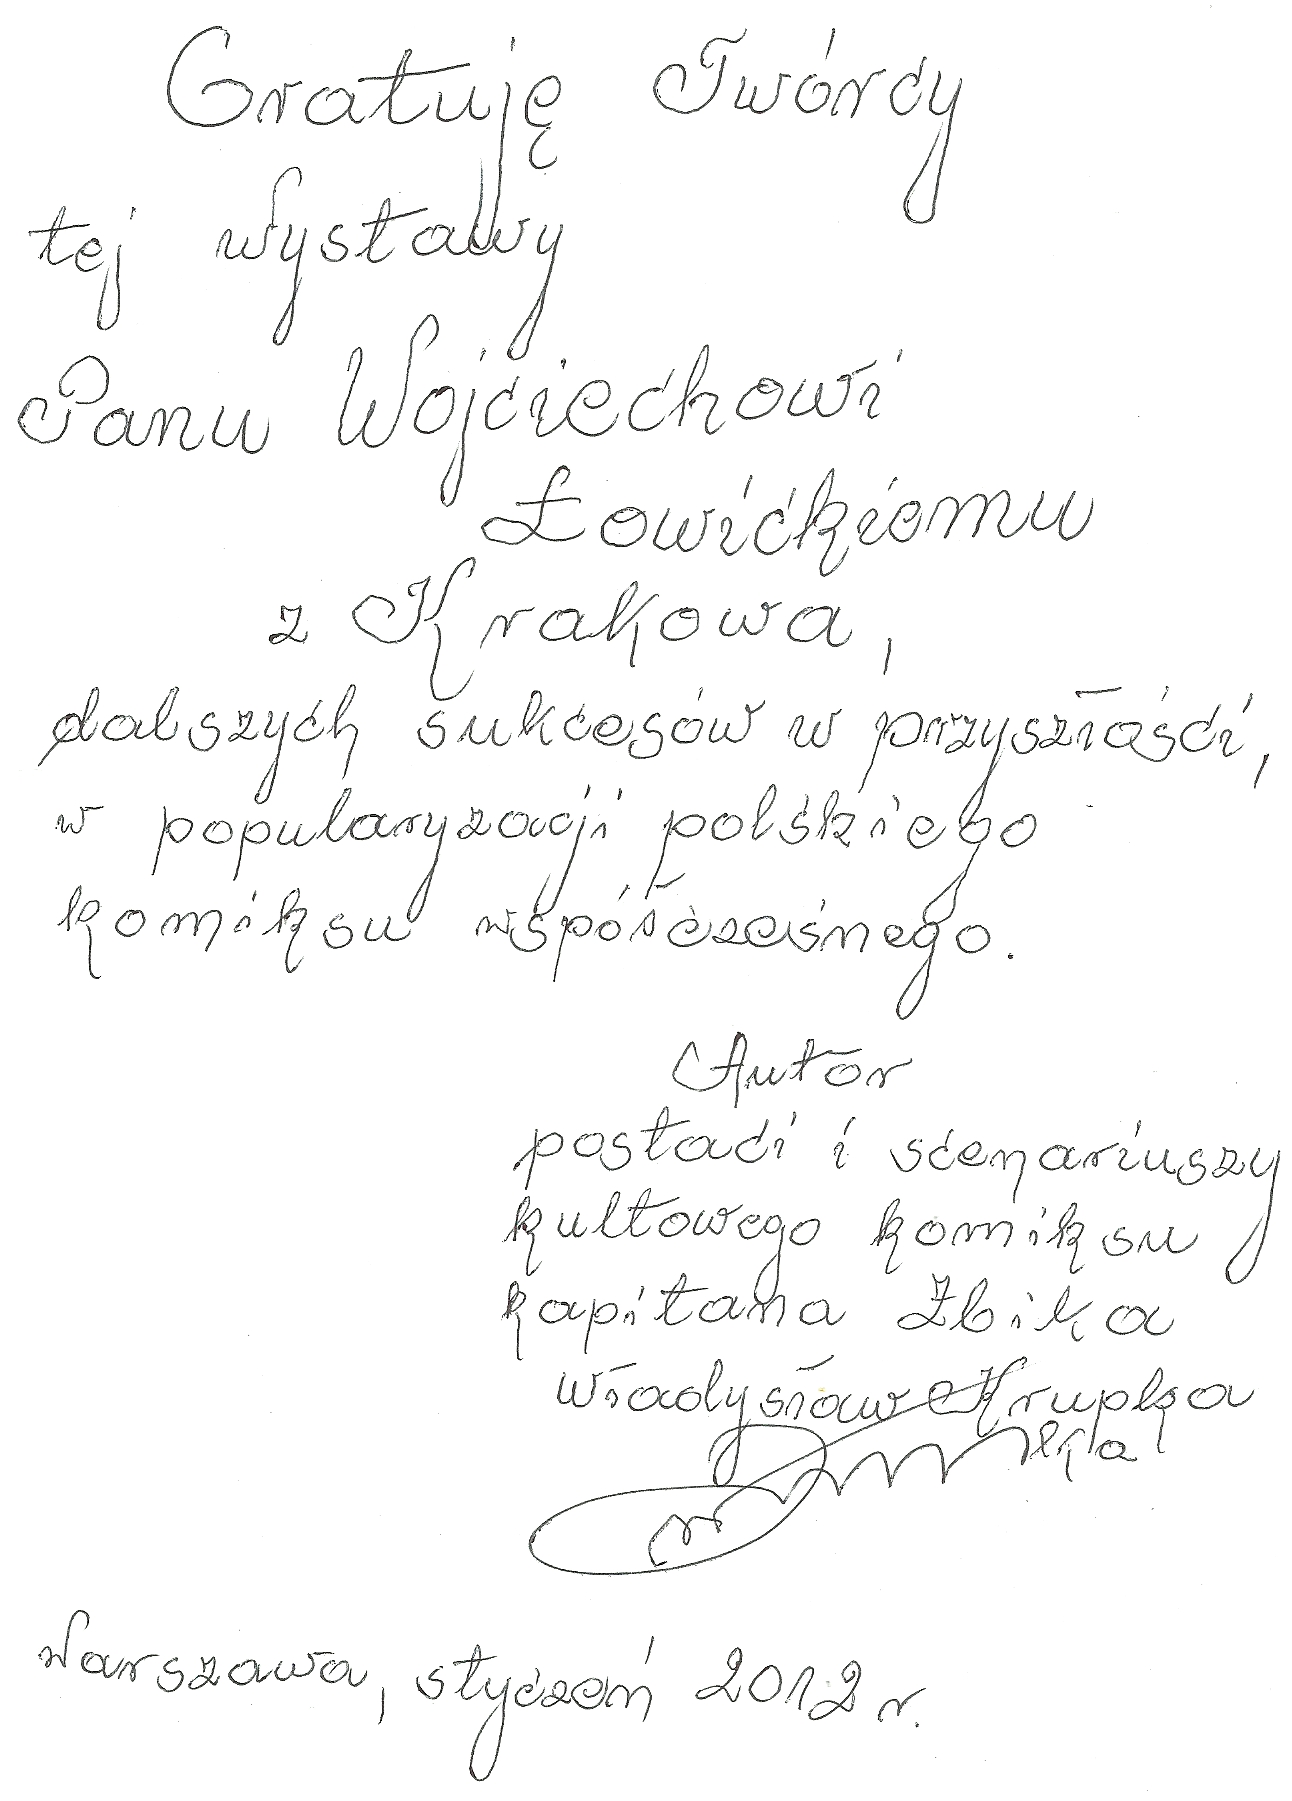 Gratuję Twórcy
tej wystawy
Panu Wojciechowi
Łowickiemu
z Krakowa,
dalszych sukcesów w przyszłości,
w popularyzacji polskiego
komiksu współczesnego.
Autor
postaci i scenariuszy
kultowego komiksu
kapitana Żbika
Władysław Krupka
Warszawa, styczeń 2012 r.